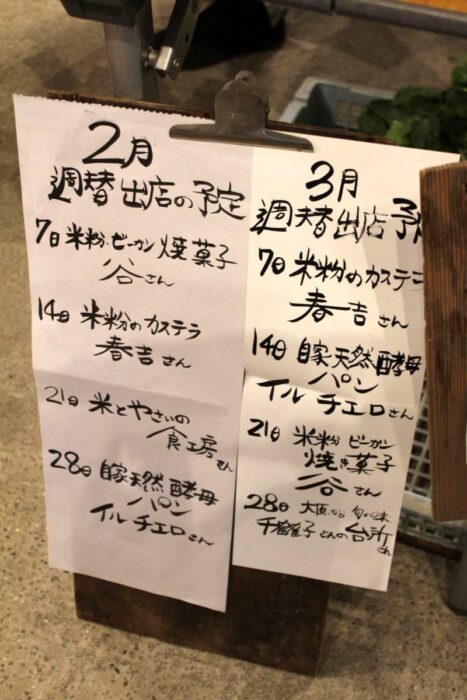 2月
週替出店の予定
7日 米粉・ビーカン 焼菓子
谷さん
14日 米粉のカステラ
春吉さん
21日 米とやさいの
食工房さん
28日 自家天然酵母
パン
イル チエロさん
3月
週替出店予
7日 米粉のカステラ
春吉さん
14日 自家天然酵母
パン
イル チエロさん
21日 米粉 ビーカン
焼き菓子
谷さん
28日 大阪なら 旬の味
子さんの台所さん